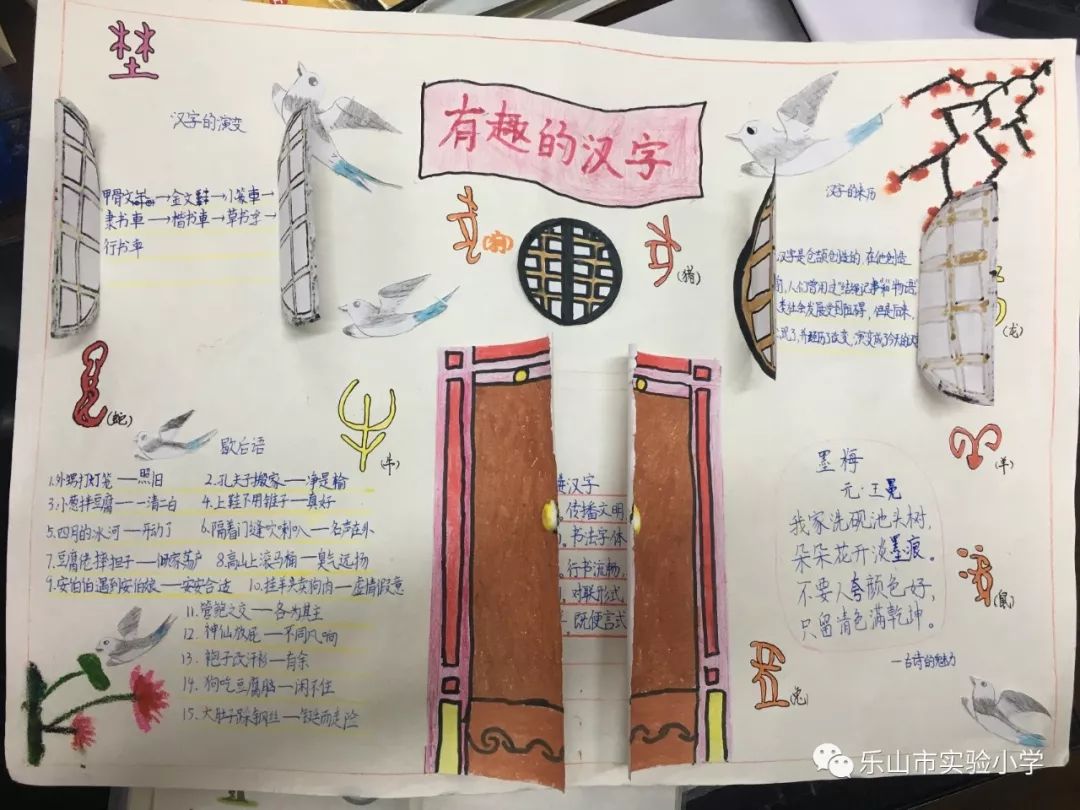 有趣的汉字
汉字的演变
甲骨文 →金文 →小篆車→
隶书車→楷书車→草书 →
行书
(狗)
(猪)
汉字的来历
汉字是仓颉创造的,在他创造
前,人们曾用过"结绳记事"和"物语"
类社会发展受到阻碍,但是后来,
并经历了改变,演变成了今天的
(龙)
(蛇)
(牛)
(羊)
(鼠)
(兔)
歇后语
1.外甥打灯笼——照旧
2.孔夫子搬家——净是输
3.小葱拌豆腐——清二白
4.上鞋不用锥子——真好
5.四月的冰河——开动了
6.隔着门缝吹喇叭——名声在外
7.豆腐佬摔担子——倾家荡产
8.高山上滚马桶——臭气远扬
9.安伯伯遇到安伯娘——安安合适
10.挂羊头卖狗肉——虚情假意
11.管鲍之交——各为其主
12.神仙放屁——不同凡响
13.袍子改汗衫—有余
14.狗吃豆腐脑—闲不住
15.大肚子踩钢丝—铤而走险
汉字
传播文明,
书法字体
行书流畅,
对联形式,
既便言式
墨梅
元·王冕
我家洗砚池头树,
朵朵花开淡墨痕。
不要人夸颜色好,
只留清色满乾坤。
—古诗的魅力
乐山市实验小学